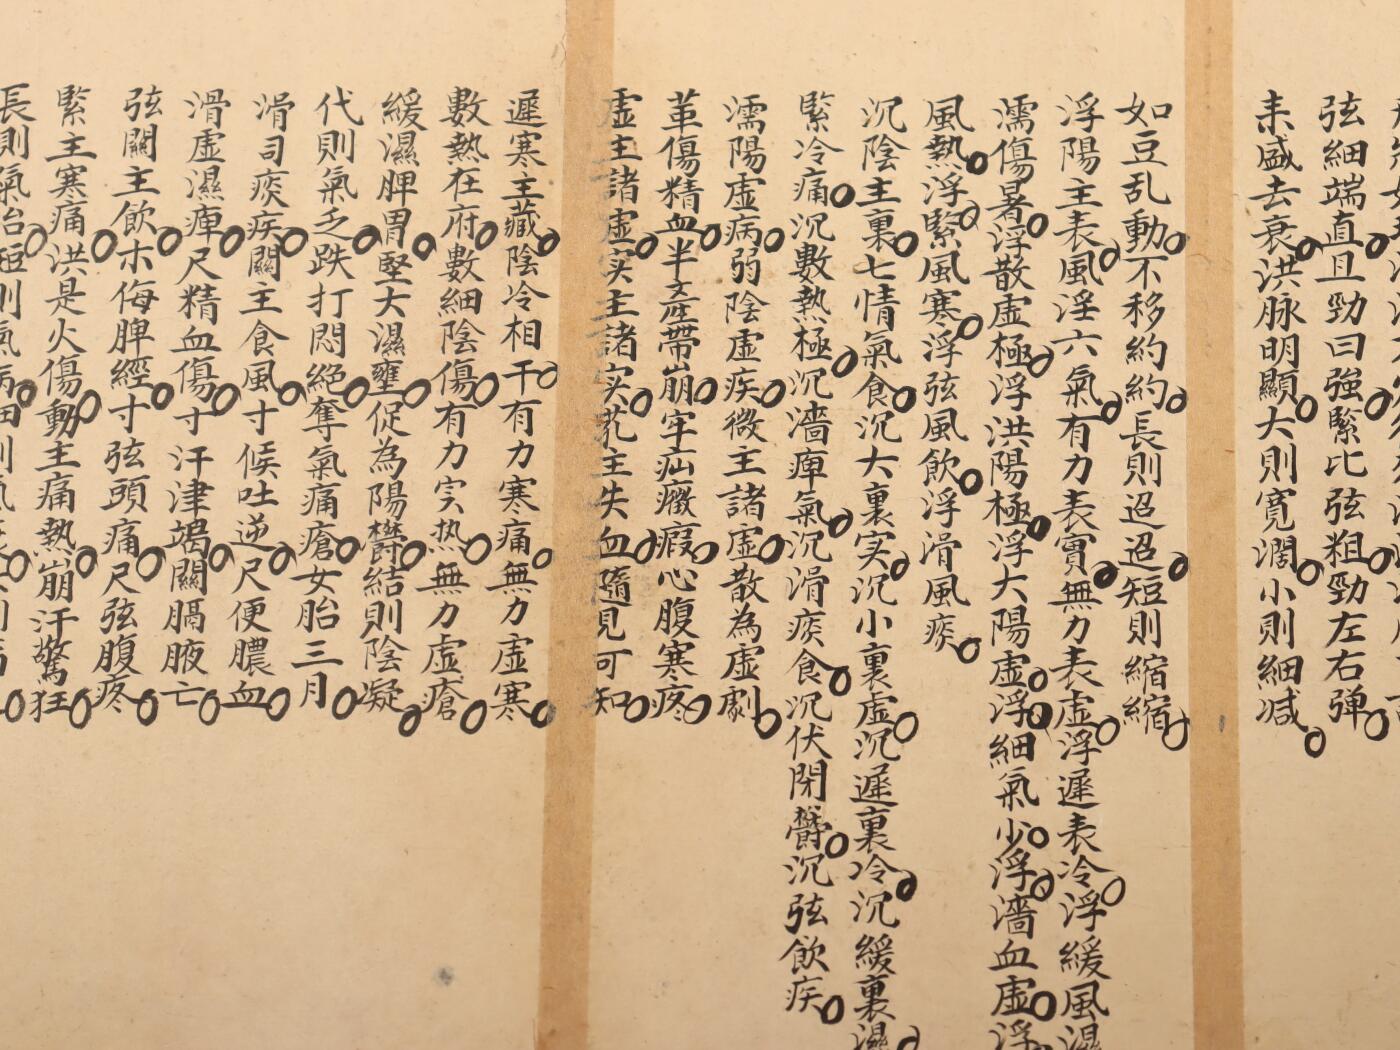 弦細端直且勁曰強緊比弦粗勁左右弾
来盛去衰洪脉明顯大則寛濶小則細减
如豆乱動不移約約長則迢迢短則縮縮
浮陽主表風淫六氣有力表實無力表虚浮遲表冷浮緩風濕
濡傷暑浮散虚極浮洪陽極浮大陽虚浮細氣少浮濇血虚浮
風熱浮緊風寒浮弦風飲浮滑風痰
沉陰主裏七情氣食沉大裏实沉小裏虚沉遲裏冷沉緩裏濕
緊冷痛沉數熱極沉濇痺氣沉滑痰食沉伏閉欝沉弦飲疾
濡陽虚病弱陰虚疾微主諸虚散為虚劇
革傷精血半産帯崩牢疝癥瘕心腹寒疼
虚主諸虚实主諸实芤主失血隨見可知
遲寒主藏陰冷相干有力寒痛無力虚寒
數熱在府數細陰傷有力实热無力虚瘡
緩濕脾胃堅大濕壅促為陽欝結則陰凝
代則氣乏跌打悶絕奪氣痛瘡女胎三月
滑司痰疾關主食風寸候吐逆尺便膿血
滑虚濕痺尺精血傷寸汗津竭關膈腋亡
弦關主飲木侮脾經寸弦頭痛尺弦腹疼
緊主寒痛洪是火傷動主痛熱崩汗驚狂
長則氣治短則氣病